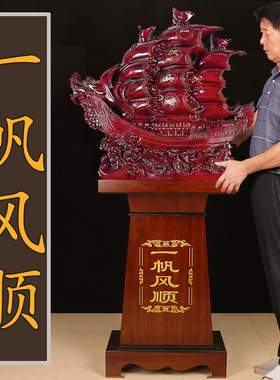 一帆风顺
一帆风顺